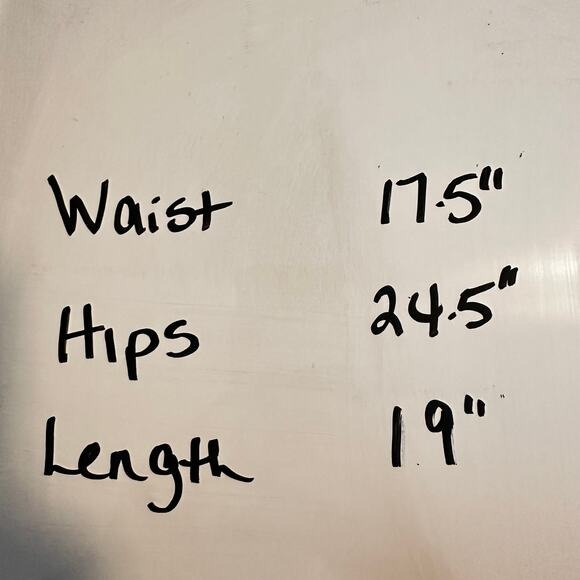 Waist 17.5"
Hips 24.5"
Length 19"